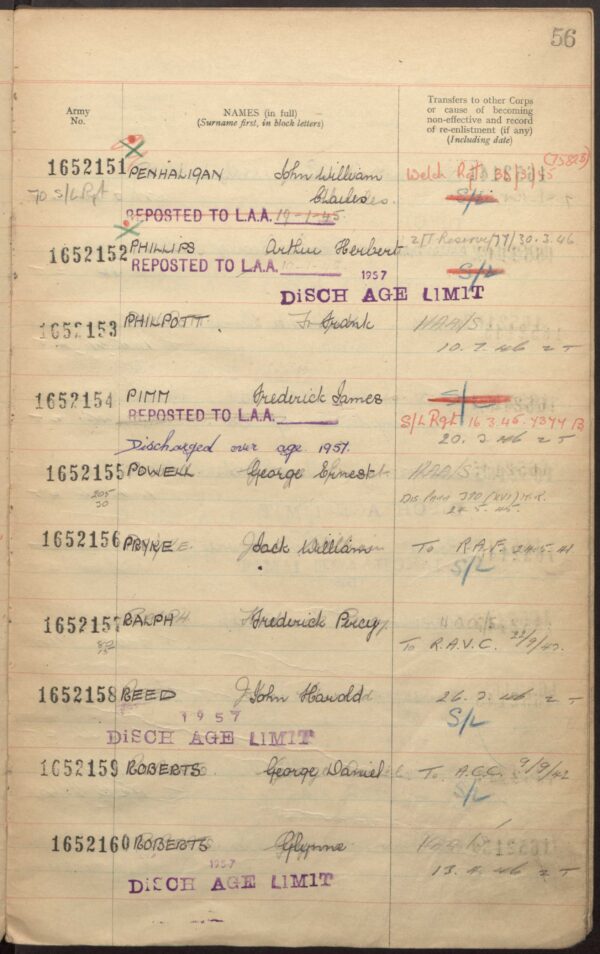 56
Army
No.
NAMES (in full)
(Surname first, in block letters)
Transfers to other Corps
or cause of becoming
non-effective and record
of re-enlistment (if any)
(Including date)
1652151 PENHALIGAN John William Welch Rgt
TO S/L Rgt Charles S/L
REPOSTED TO L.A.A. 19-1-45
1652152 PHILLIPS Arthur Herbert Z/T Reserve 30.3.46
REPOSTED TO L.A.A. S/L
1957
DISCH AGE LIMIT
1652153 PHILPOTT Frank HAA/S
10.7.46 Z T
1652154 PIMM Frederick James S/L
REPOSTED TO L.A.A. S/L Rgt 16.3.45
20.2.46 Z T
Discharged over age 1957.
1652155 POWELL George Ernest HAA/S
205
30
Dis Para 390 (XVI) K.R.
24.5.45.
1652156 PRYKE Jack William To R.A.F. 24.5.41
S/L
1652157 RALPH Frederick Percy
To R.A.V.C.
1652158 REED John Harold 26.2.46 Z T
1957 S/L
DISCH AGE LIMIT
1652159 ROBERTS George Daniel To A.C.C. 9/9/42
S/L
1652160 ROBERTS Glynne HAA/S
1957 13.4.46 Z T
DISCH AGE LIMIT